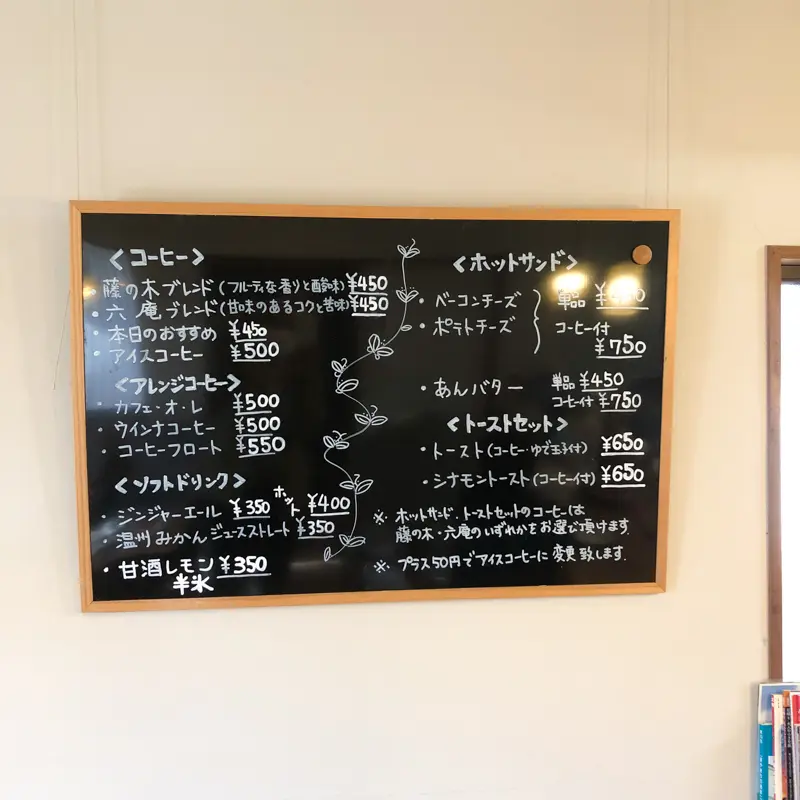 <コーヒー>
藤の木ブレンド(フルーティな香りと酸味)¥450
・六庵ブレンド(甘味のあるコクと苦味)¥450
・本日のおすすめ ¥450
・アイスコーヒー ¥500
<アレンジコーヒー>
・カフェ・オ・レ ¥500
・ウインナコーヒー ¥500
・コーヒーフロート ¥550
<ソフトドリンク>
・ジンジャーエール ¥350 ホット ¥400
・温州みかんジュースストレート ¥350
・甘酒レモン ¥350
半氷
<ホットサンド>
・ベーコンチーズ
・ポテトチーズ
単品
コーヒー付
¥750
・あんバター 単品 ¥450
コーヒー付 ¥750
<トーストセット>
・トースト(コーヒー・ゆで玉子付) ¥650
・シナモントースト(コーヒー付) ¥650
※ ホットサンド、トーストセットのコーヒーは
藤の木・六庵のいずれかをお選び頂けます。
※ プラス50円でアイスコーヒーに変更致します。